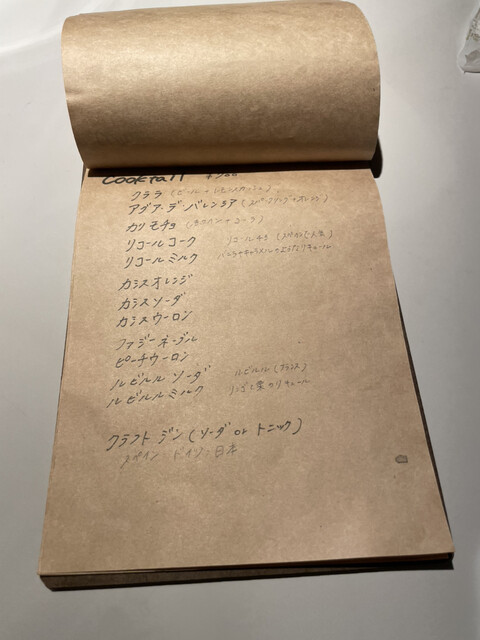 Cocktail
クララ (ビール+レモン
アグア・デ・バレンシア (スパークリング+オレンジ)
カリモチョ (赤ワイン+コーラ)
リコールコーク リコール43 (スペインで人気)
リコールミルク バニラやキャラメルの リキュール
カシスオレンジ
カシスソーダ
カシスウーロン
ファジーネーブル
ピーチウーロン
ルビルルソーダ ルビルル (フランス)
ルビルルミルク リンゴと栗のリキュール
クラフトジン (ソーダ or トニック)
スペイン ドイツ 日本